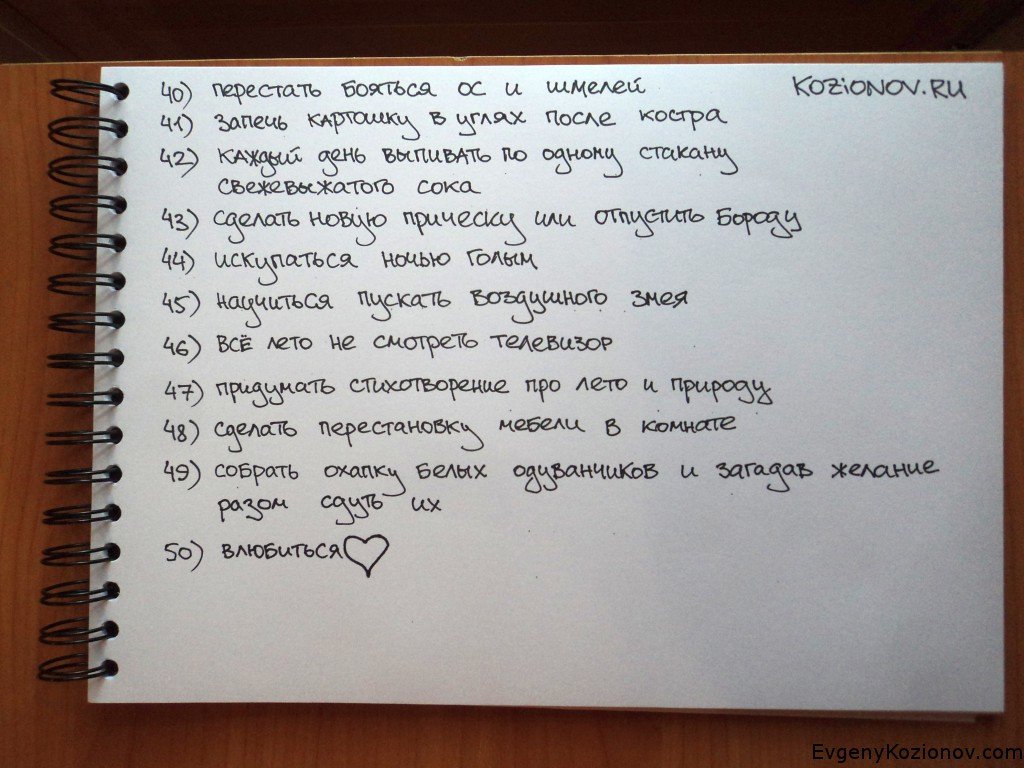 KOZIONOV.RU
40) перестать бояться ос и шмелей
41) запечь картошку в углях после костра
42) каждый день выпивать по одному стакану
свежевыжатого сока
43) сделать новую прическу или отпустить бороду
44) искупаться ночью голым
45) научиться пускать воздушного змея
46) всё лето не смотреть телевизор
47) придумать стихотворение про лето и природу
48) сделать перестановку мебели в комнате
49) собрать охапку белых одуванчиков и загадав желание
разом сдуть их
50) влюбиться
EvgenyKozionov.com